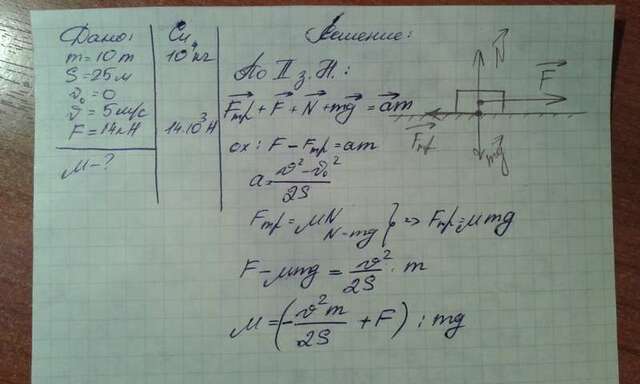 Дано:
m = 10 т
S = 25 м
v₀ = 0
v = 5 м/с
F = 14 кН
μ - ?
Си
10⁴ кг
14·10³ Н
Решение:
По II з. Н.:
F⃗тр + F⃗ + N⃗ + mg⃗ = a⃗m
ox: F - Fтр = am
a = (v² - v₀²)/2S
Fтр = μN
N = mg } => Fтр = μmg
F - μmg = v²/2S · m
μ = (- v²m/2S + F) : mg
N⃗
F⃗
F⃗тр
mg⃗